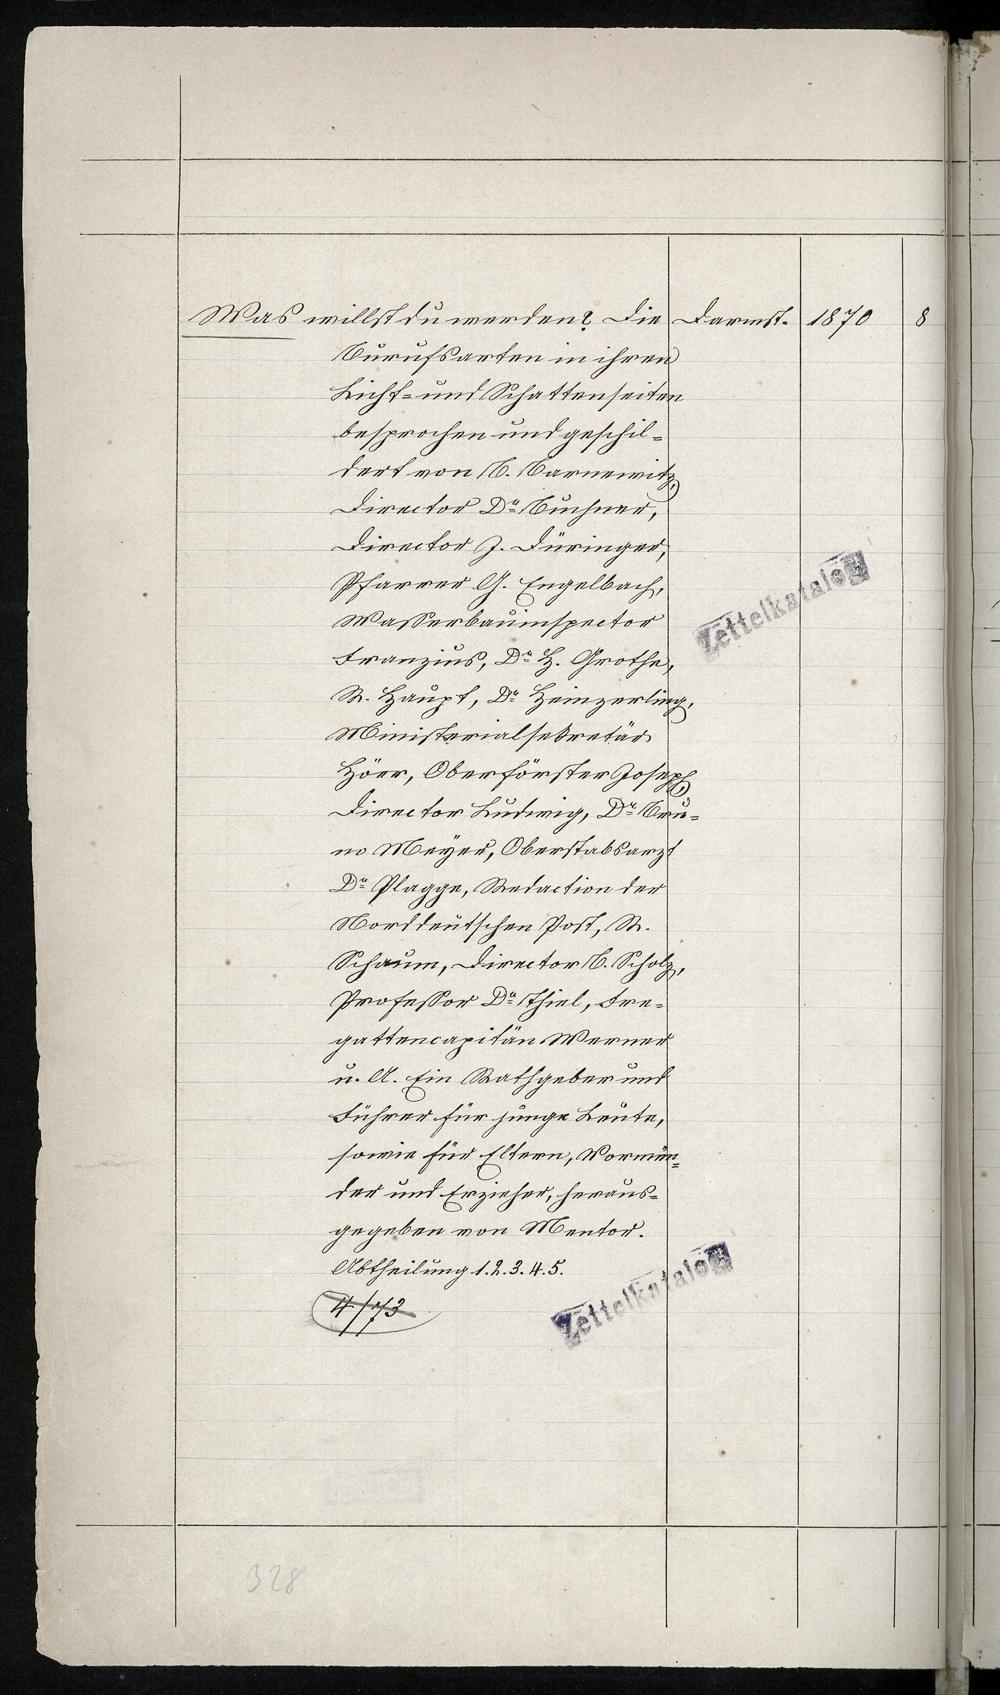 Was willst du werden? Die Darmst. 1870 8
Berufsarten in ihren
Licht- und Schattenseiten
besprochen und geschil-
dert von B. Barnewitz,
Director Dr Buchner,
Director J. Düringer,
Pfarrer G. Engelbach,
Wasserbauinspector
Franzius, Dr H. Grothe,
R. Haupt, Dr Heinzerling,
Ministerialsekretär
Hörr, Oberförster Joseph,
Director Ludwig, Dr Bru-
no Meyer, Oberstabsarzt
Dr Plagge, Redaction der
Norddeutschen Post, R.
Schaum, Director B. Scholz,
Professor Dr Thiel, Fre-
gattencapitän Werner
u. A. Ein Rathgeber und
Führer für junge Leute,
sowie für Eltern, Vormün-
der und Erzieher, heraus-
gegeben von Mentor.
Abtheilung 1.2.3.4.5.
4/73
Zettelkatalog
Zettelkatalog
328